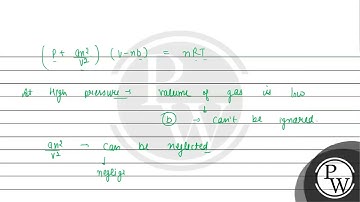 (P + an²/v²) (v-nb) = nRT
At High pressure → volume of gas is low
b → can't be ignored
an²/v² → can be neglected
neglige
P
W
PW